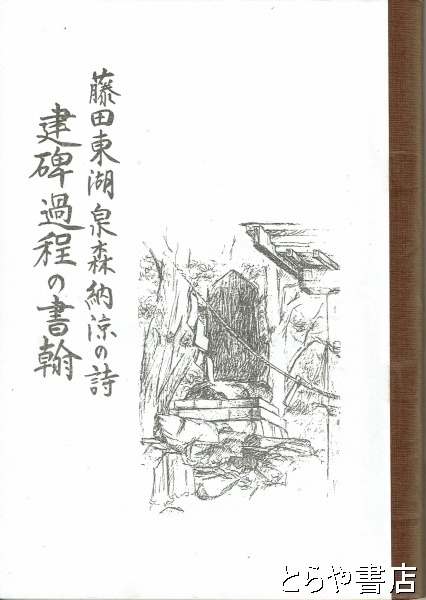 藤田東湖泉森納涼の詩
建碑過程の書翰
とらや書店